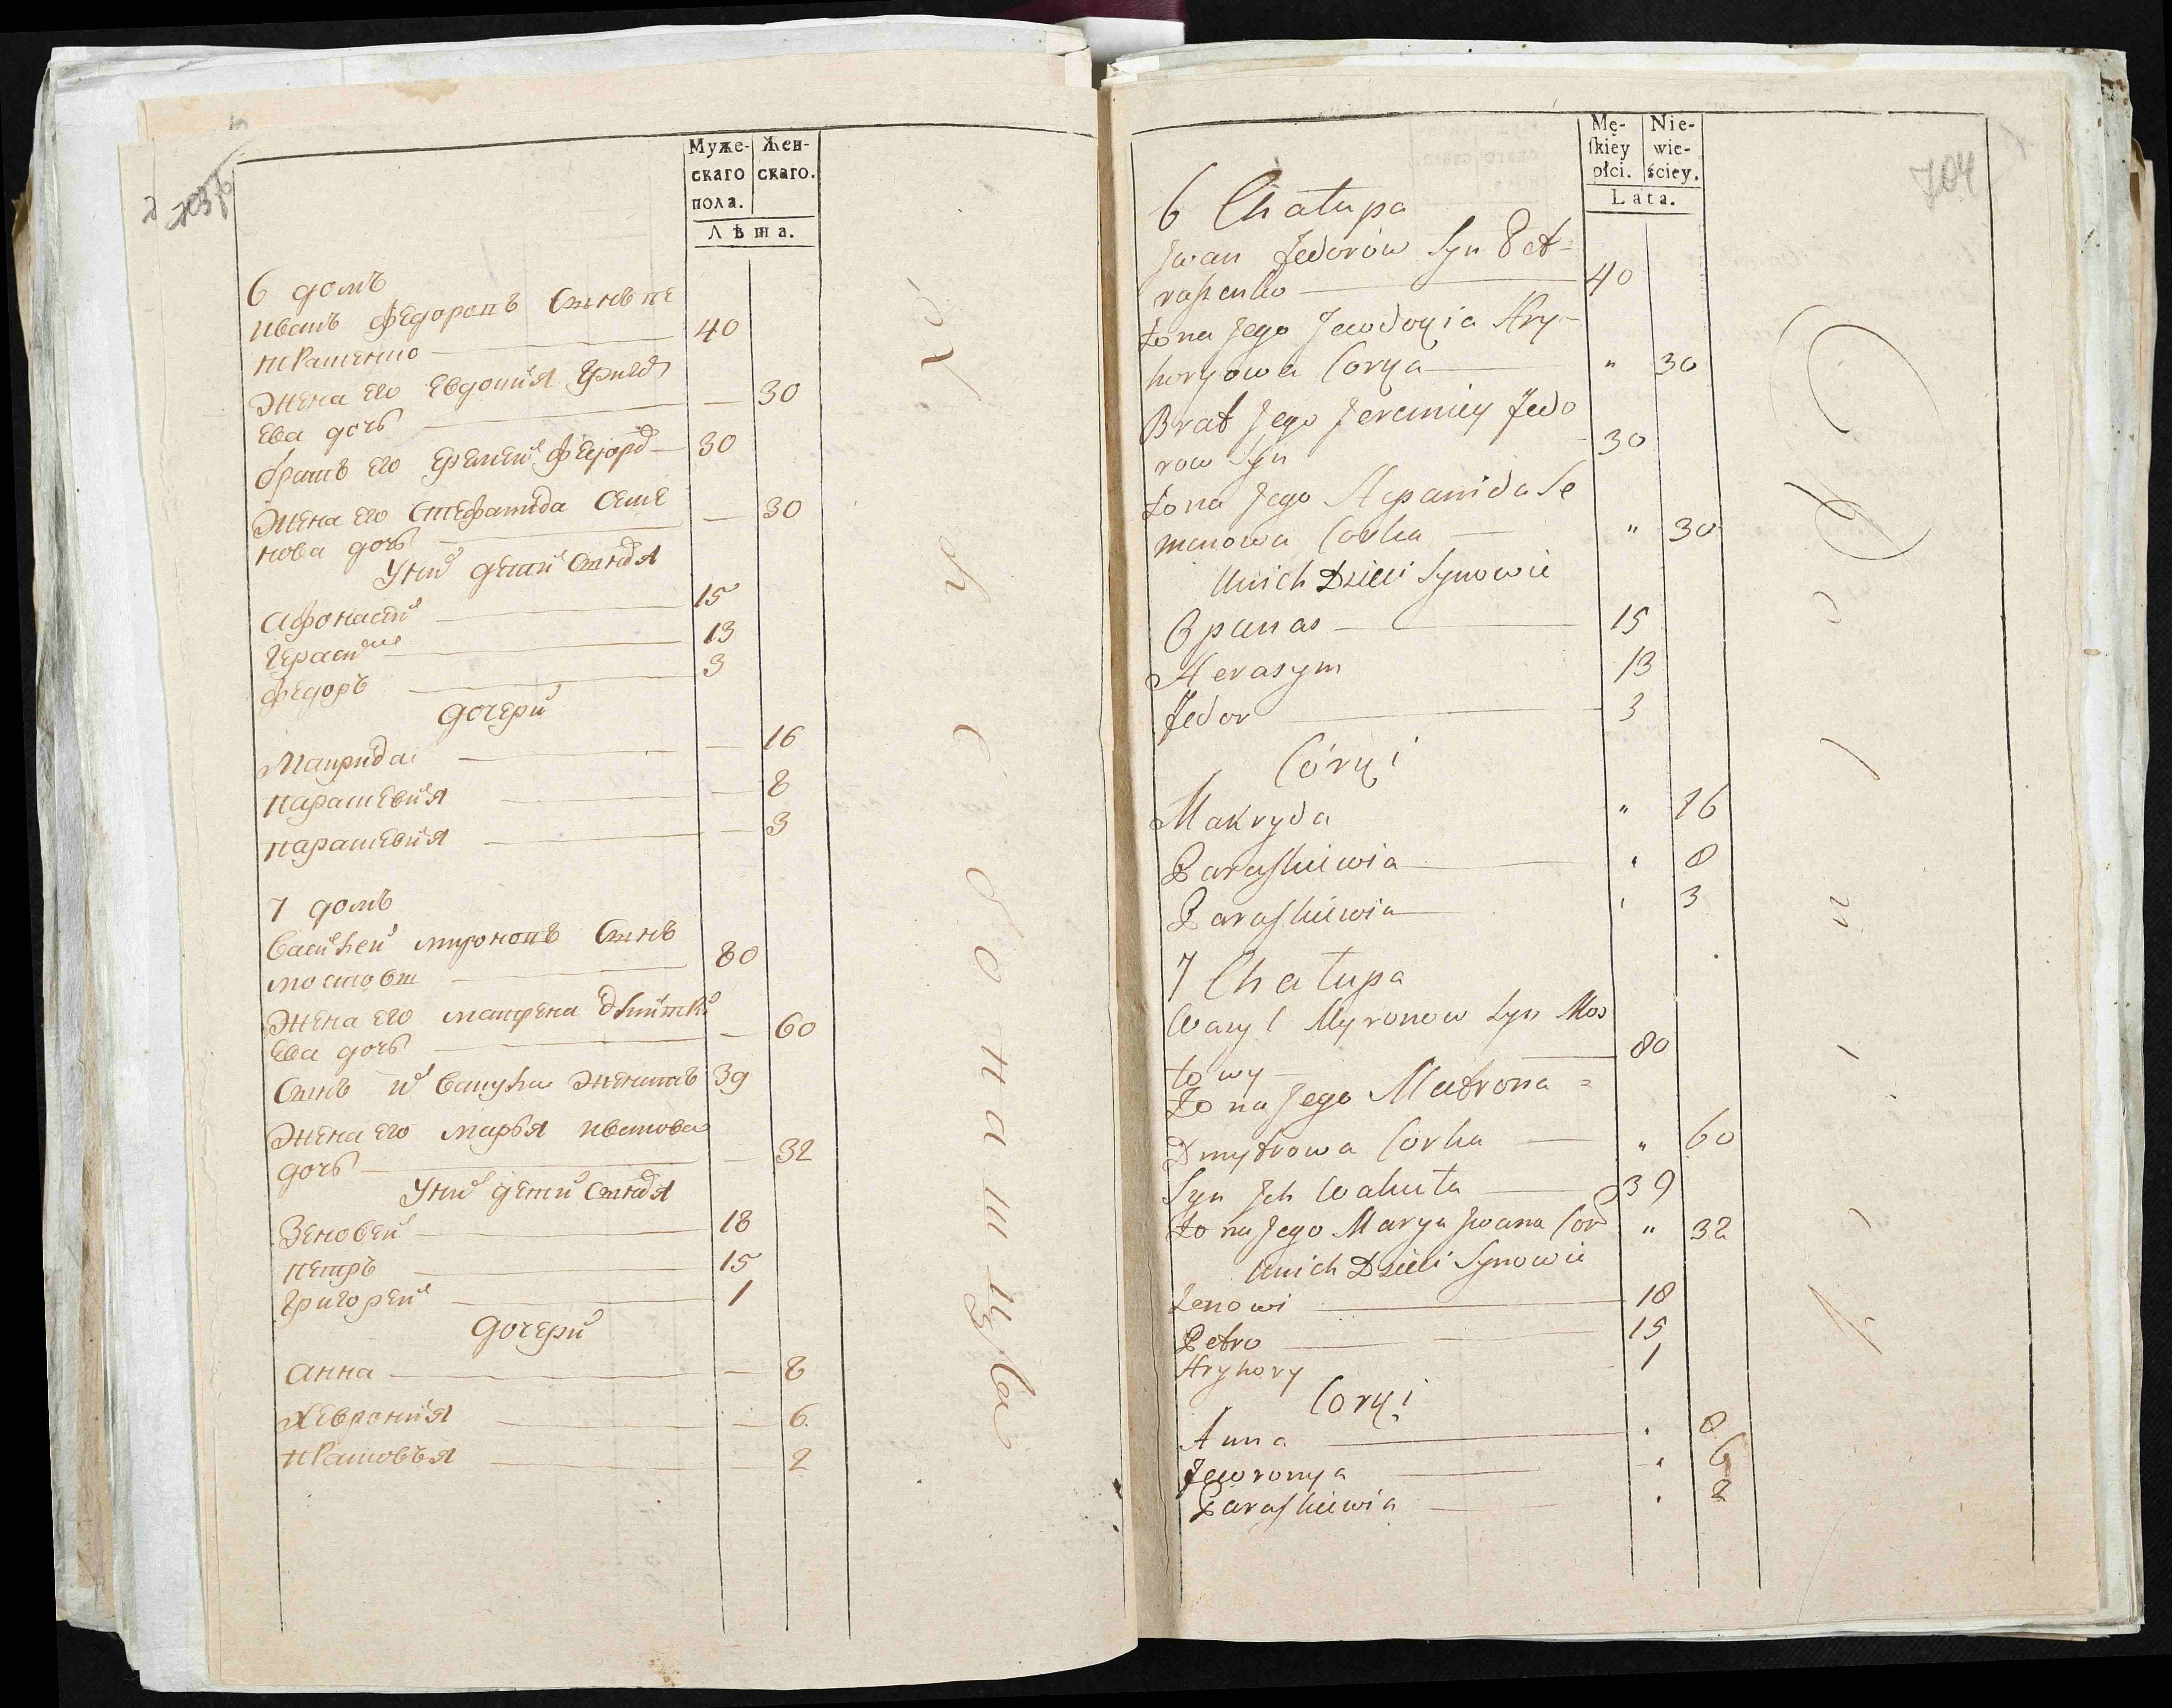 703
Муже-
скаго
пола.
Жен-
скаго.
Лѣта.
6 домъ
иванъ федоровъ Сынъ пе
трашенко 40
Жена его Евдокия Григо
ева дочь — 30
братъ его Еремей федоро 30
Жена его Степанида Семе
нова дочь — 30
Унихъ детей Сыновя
Афонасий 15
Герасимъ 13
федоръ 3
дочери
Макрида — 16
парашевия — 8
парашевия — 3
7 домъ
Василей мироновъ Сынъ
мостовы 80
Жена его матрена дмитри
ева дочь — 60
Сынъ ихъ Вакула женатъ 39
Жена его марья иванова
дочь — 32
Унихъ детей Сыновя
Зеновей 18
петръ 15
Григорей 1
дочери
анна — 8
Хеврония — 6
— 2
704
Mę-
ſkiey
płci.
Nie-
wie-
ściey.
Lata.
6 Chatupa
Jwan Fedorów Syn Pet-
raszenko 40
Zona Jego Jewdokia Hry-
horyowa Corka " 30
Brat Jego Jeremiey Fedo
row Syn 30
Zona Jego Stepanida Se
menowa Corka " 30
Unich Dzieci Synowie
Opanas 15
Herasym 13
Fedor 3
Córki
Makryda " 16
Paraskiewia " 8
Paraskiewia " 3
7 Chatupa
Wasyl Myronow Syn Mos
towy 80
Zona Jego Matrona =
Dmytrowa Corka " 60
Syn Jch Wakuta 39
Zona Jego Marya Jwana Cor " 32
Unich Dzieci Synowie
Zenowi 18
Petro 15
Hryhory 1
Corki
Anna " 8
Jewronya " 6
Paraskiewia " 2